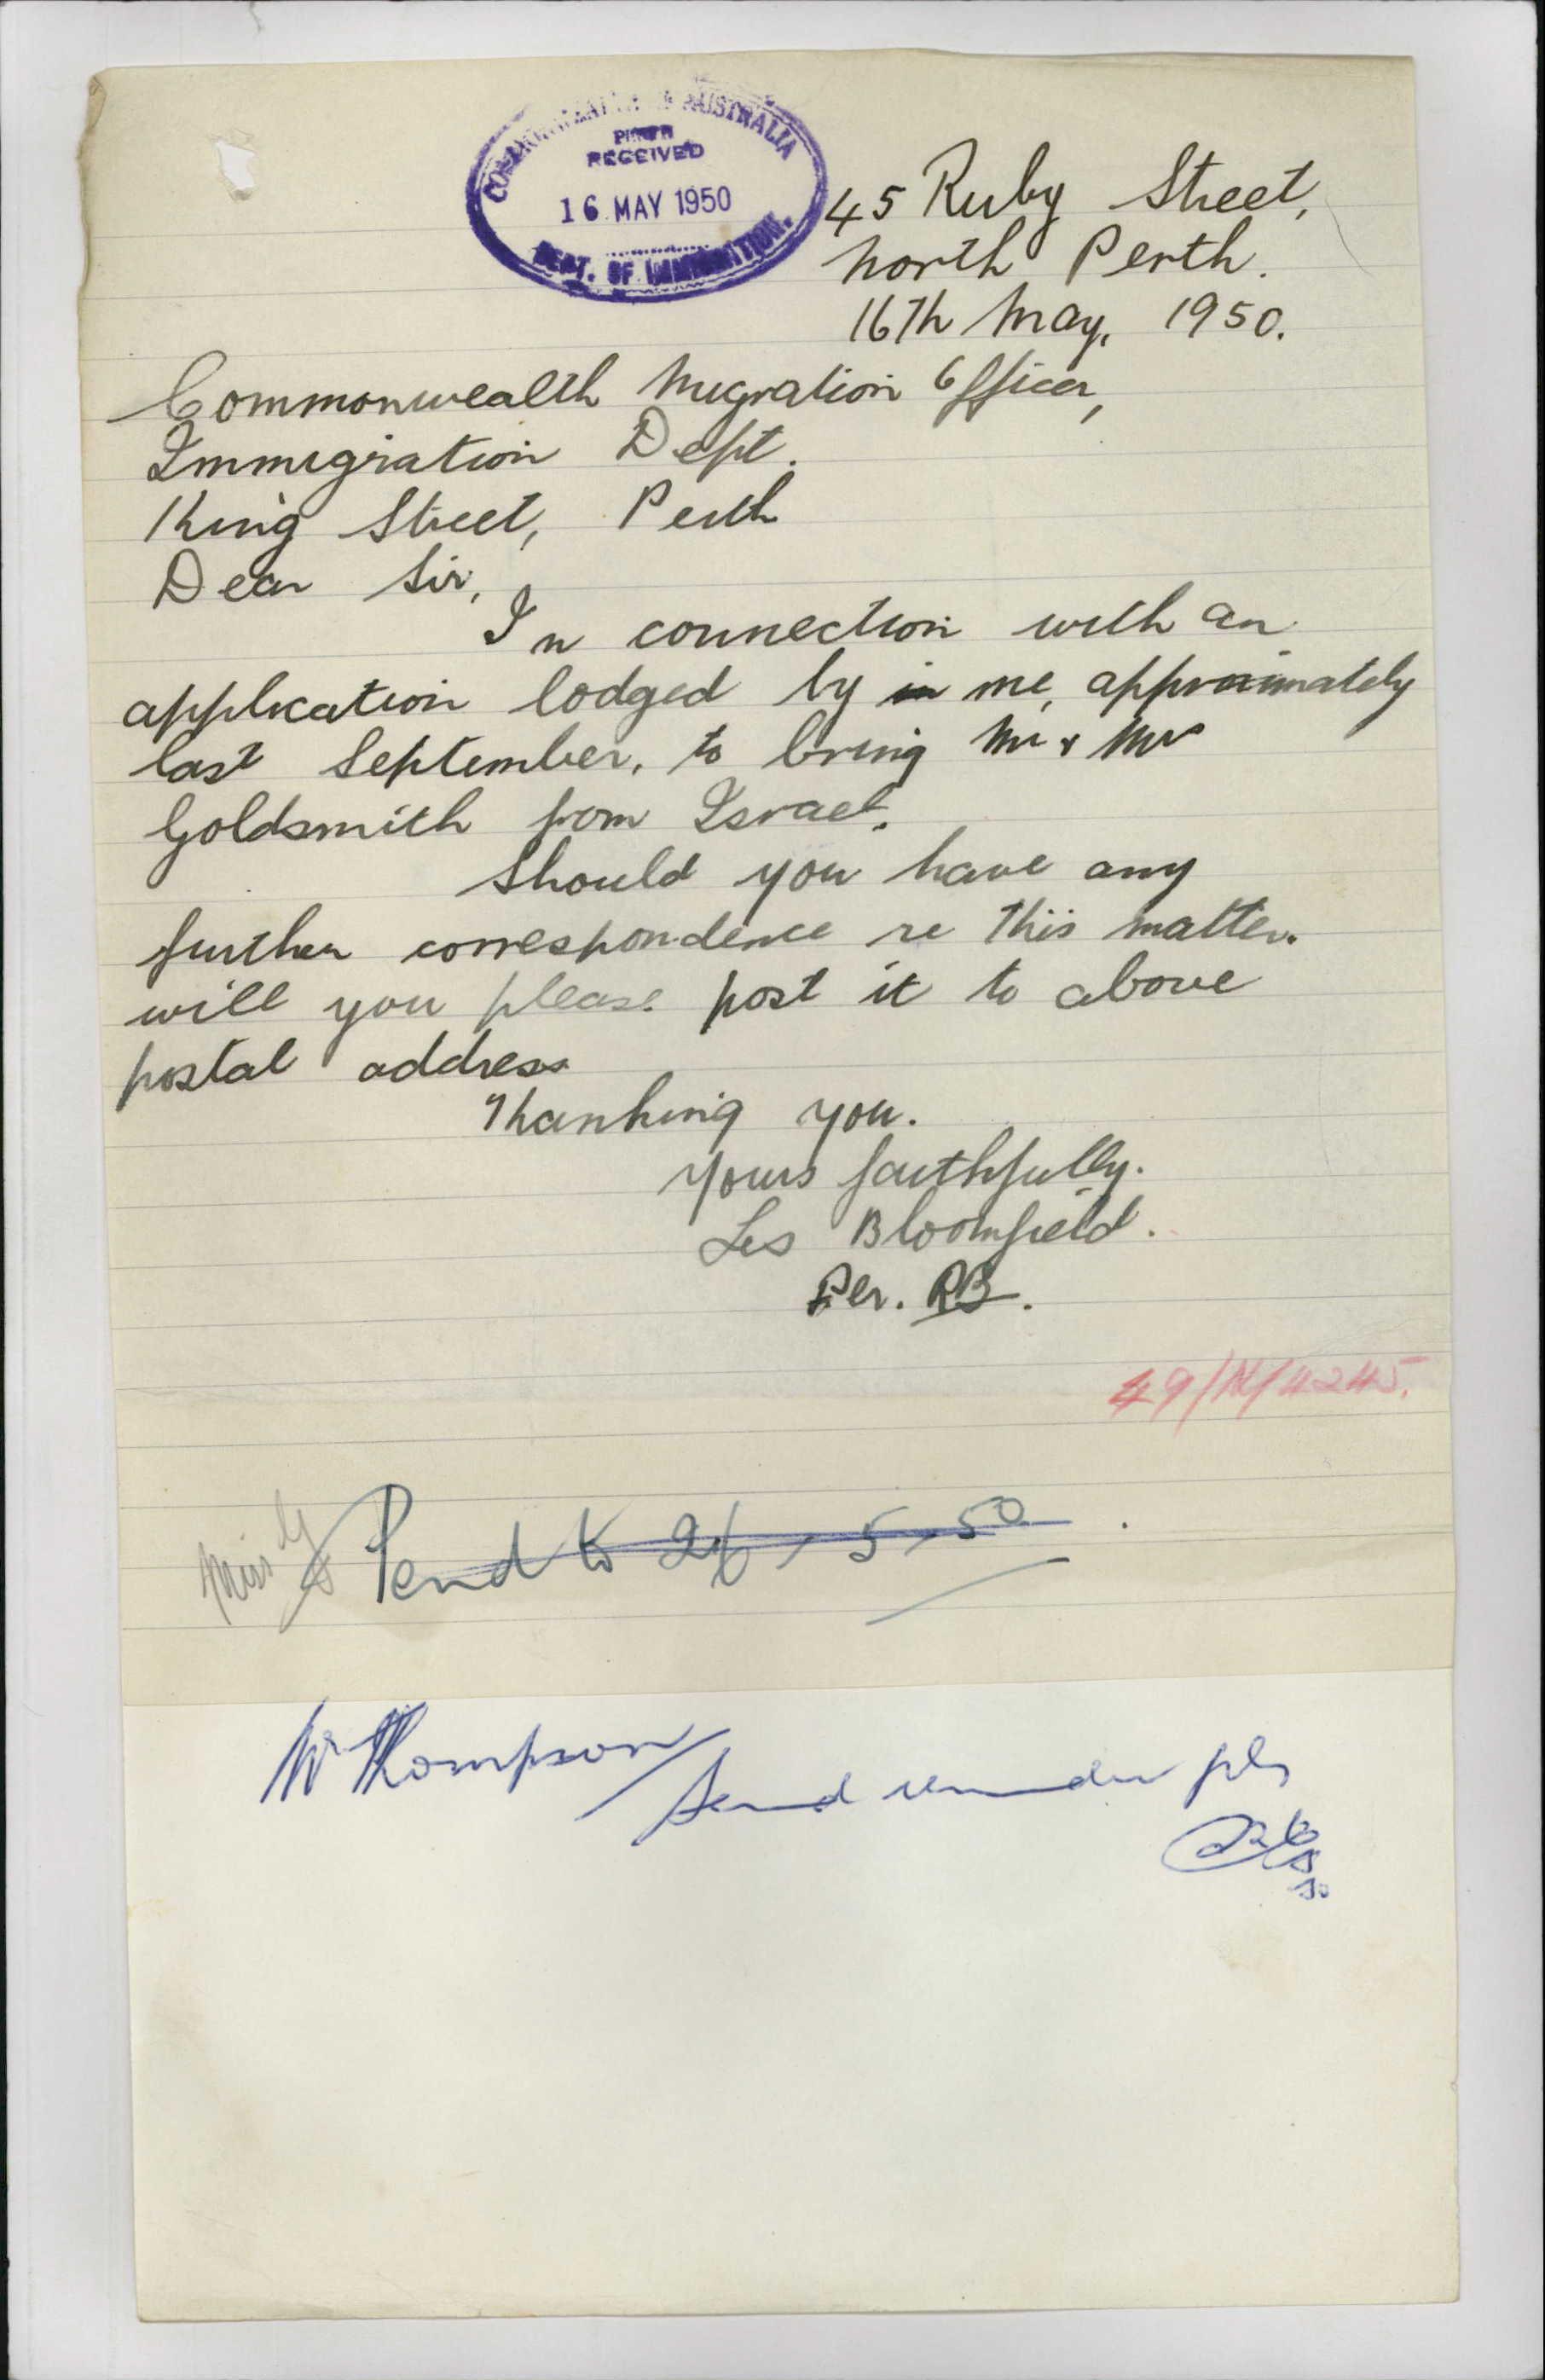 COMMONWEALTH OF AUSTRALIA
PERTH
RECEIVED
16 MAY 1950
DEPT. OF IMMIGRATION.
45 Ruby Street,
North Perth.
16th May, 1950.
Commonwealth Migration Officer,
Immigration Dept.
King Street, Perth
Dear Sir,
In connection with an
application lodged by in me, approximately
last September, to bring Mr & Mrs
Goldsmith from Israel.
Should you have any
further correspondence re this matter.
will you please post it to above
postal address
Thanking you.
Yours faithfully.
Les Bloomfield.
Per. RB.
49/N/4245.
Miss
Pend to 26/5/50
Mr Thompson
Send reminder pls